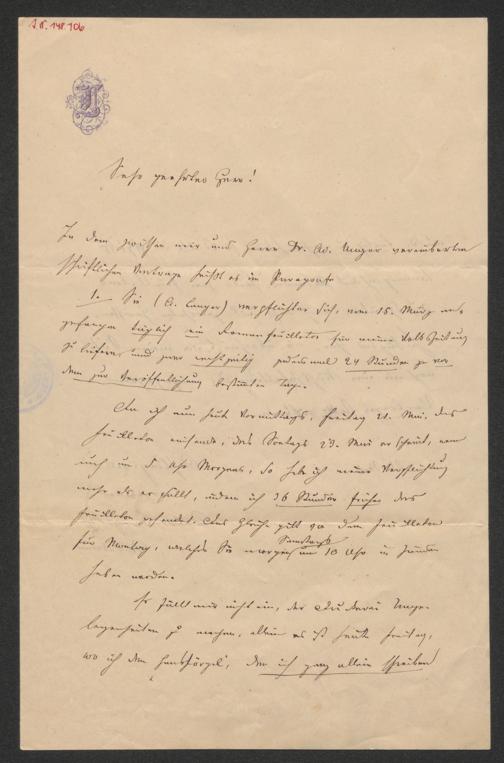 I. N. 148.106
J
Sehr geehrter Herr!
In dem zwischen mir und Herrn Dr. Ad. Unger vereinbarten
schriftlichen Vertrage heißt es im Paragraph
1. Sie (A. Langer) verpflichten sich, vom 15. März an-
gefangen täglich ein Romanfeuilleton für meine Volkszeitung
zu liefern und zwar rechtzeitig jedesmal 24 Stunden zu vor
dem zur Veröffentlichung bestimmten Tage.
Da ich nun heute Vormittags, Freitag 21. Mai, das
Feuilleton einsende, das Sontags 23. Mai erscheint,
um 5 Uhr Morgens, so habe ich meine Verpflichtung
mehr als erfüllt, indem ich 36 Stunden früher das
Feuilleton gesendet. Das Gleiche gilt von dem Feuilleton
für Montag, welches Sie morgen Samstags um 10 Uhr in Händen
haben werden.
Es fällt mir nicht ein, der Druckerei Unge-
legenheiten zu machen, allein es ist heute Freitag,
wo ich den Hansjörgel, den ich ganz allein schreiben